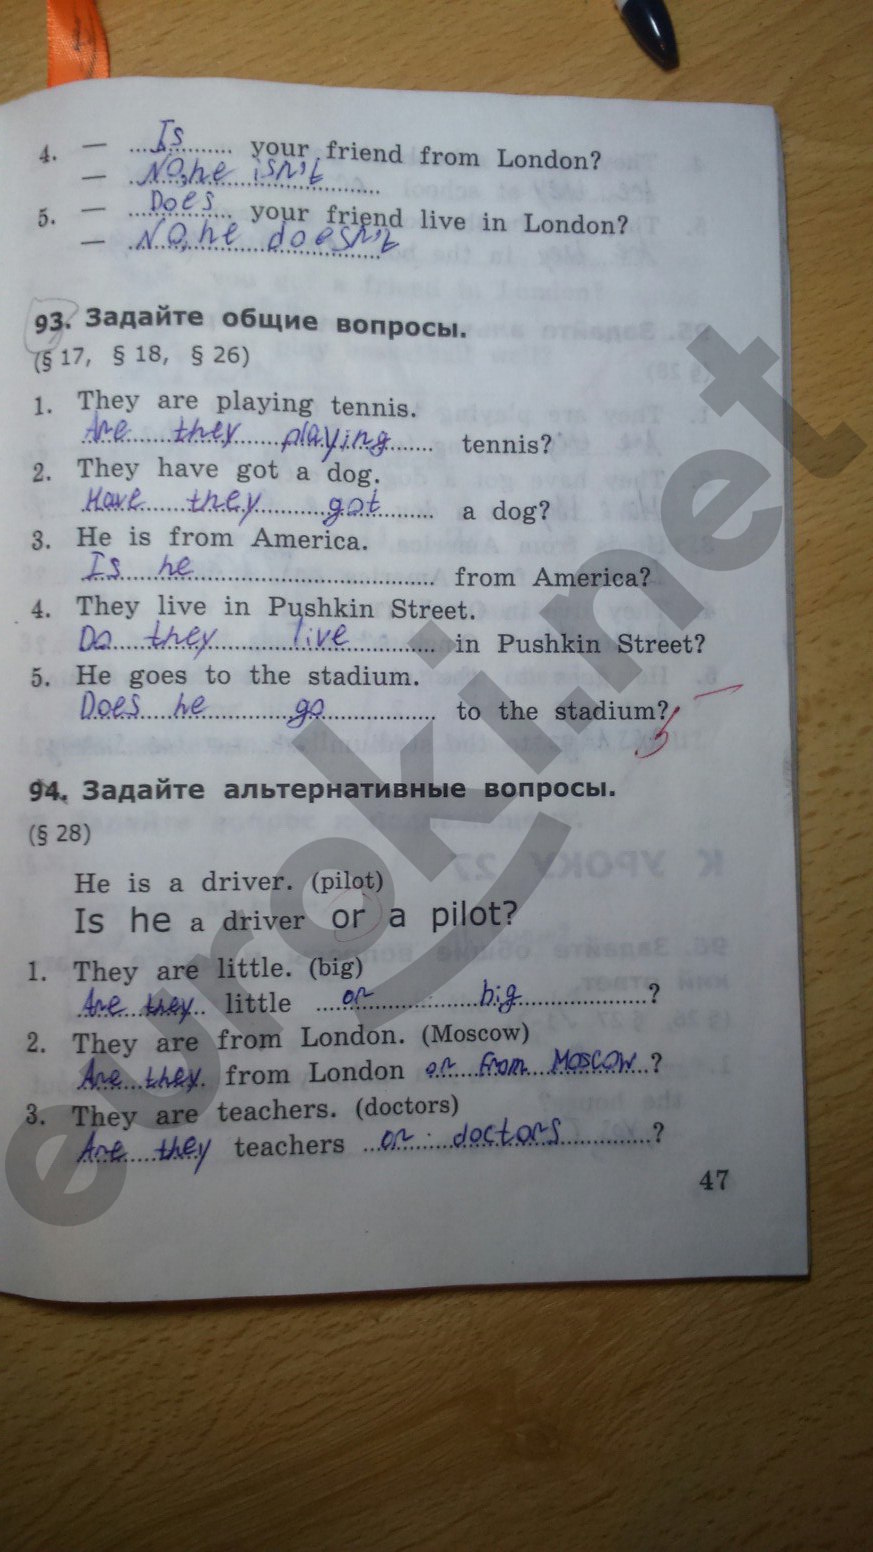 4. — Is your friend from London?
— No, he isn't
5. — Does your friend live in London?
— No, he doesn't
93. Задайте общие вопросы.
(§ 17, § 18, § 26)
1. They are playing tennis.
Are they playing tennis?
2. They have got a dog.
Have they got a dog?
3. He is from America.
Is he from America?
4. They live in Pushkin Street.
Do they live in Pushkin Street?
5. He goes to the stadium.
Does he go to the stadium?
94. Задайте альтернативные вопросы.
(§ 28)
He is a driver. (pilot)
Is he a driver or a pilot?
1. They are little. (big)
Are they little or big?
2. They are from London. (Moscow)
Are they from London or from Moscow?
3. They are teachers. (doctors)
Are they teachers or doctors?
47
euroki.net